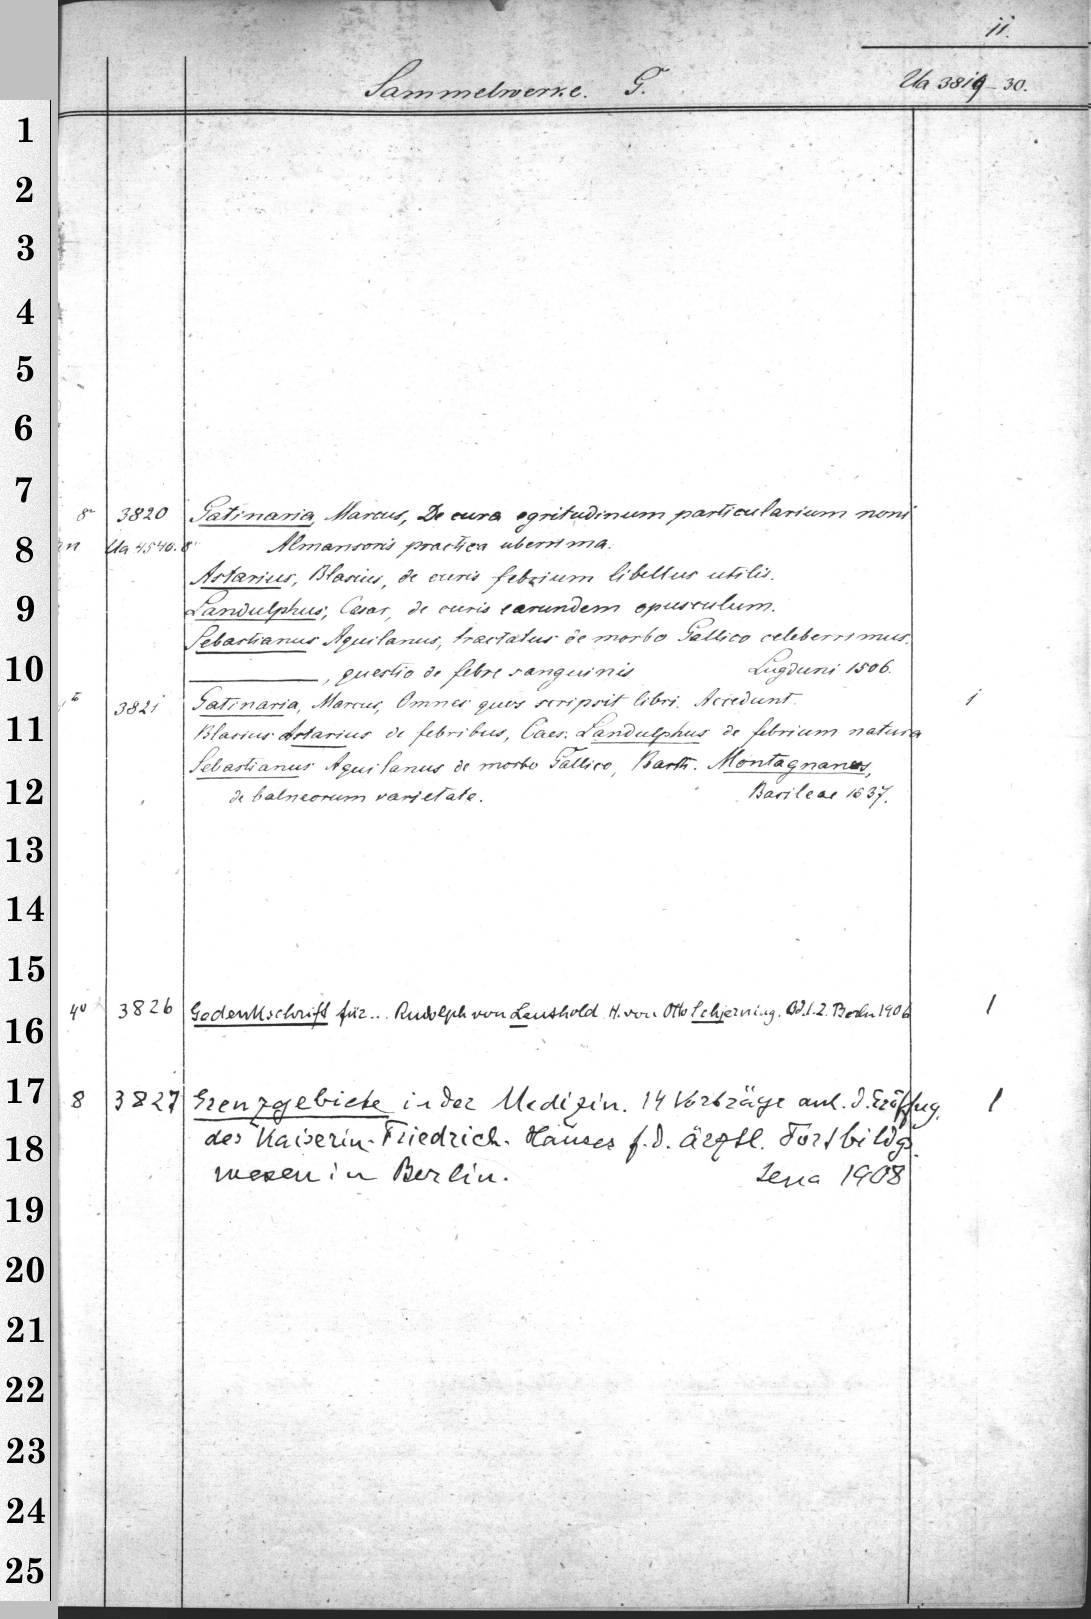 ii.
Sammelwerke. G. Ua 3819–30.
1
2
3
4
5
6
7
8° 3820 Gatinaria, Marcus, De cura egritudinum particularium noni
8 Ua 4540. 8° Almansoris practica uberrima.
Astarius, Blasius, de curis febrium libellus utilis.
9 Landulphus, Cesar, de curis earundem opusculum.
Sebastianus Aquilanus, tractatus de morbo Gallico celeberrimus.
10 ———, questio de febre sanguinis Lugduni 1506.
3821 Gatinaria, Marcus, Omnes quos scripsit libri. Accedunt. 1
11 Blasius Astarius de febribus, Caes. Landulphus de febrium natura
Sebastianus Aquilanus de morbo Gallico, Barth. Montagnanus,
12 de balneorum varietate. Basileae 1537.
13
14
15
4° 3826 Gedenkschrift für... Rudolph von Leuthold. H. von Otto Schjerning. Bd. 1. 2. Berlin 1906 1
16
17 8 3827 Grenzgebiete in der Medizin. 14 Vorträge anl. d. Eröffng. 1
18 des Kaiserin-Friedrich-Hauses f. d. ärztl. Fortbildgs.
wesen in Berlin. Jena 1908
19
20
21
22
23
24
25